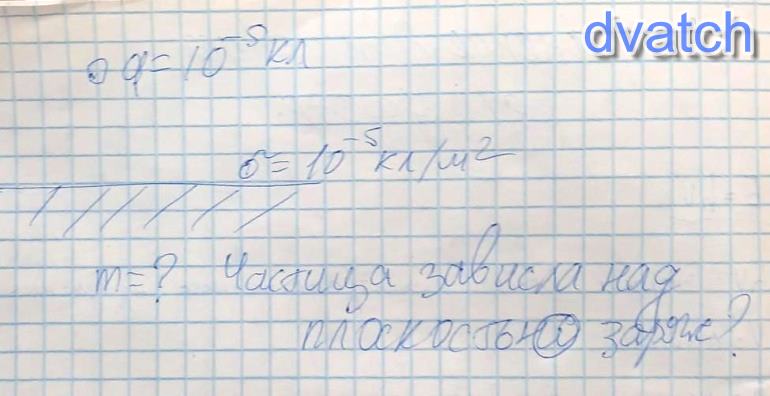 dvatch
q = 10⁻⁵ кл
σ = 10⁻⁵ кл/м²
m = ? Частица зависла над
плоскостью заряж?